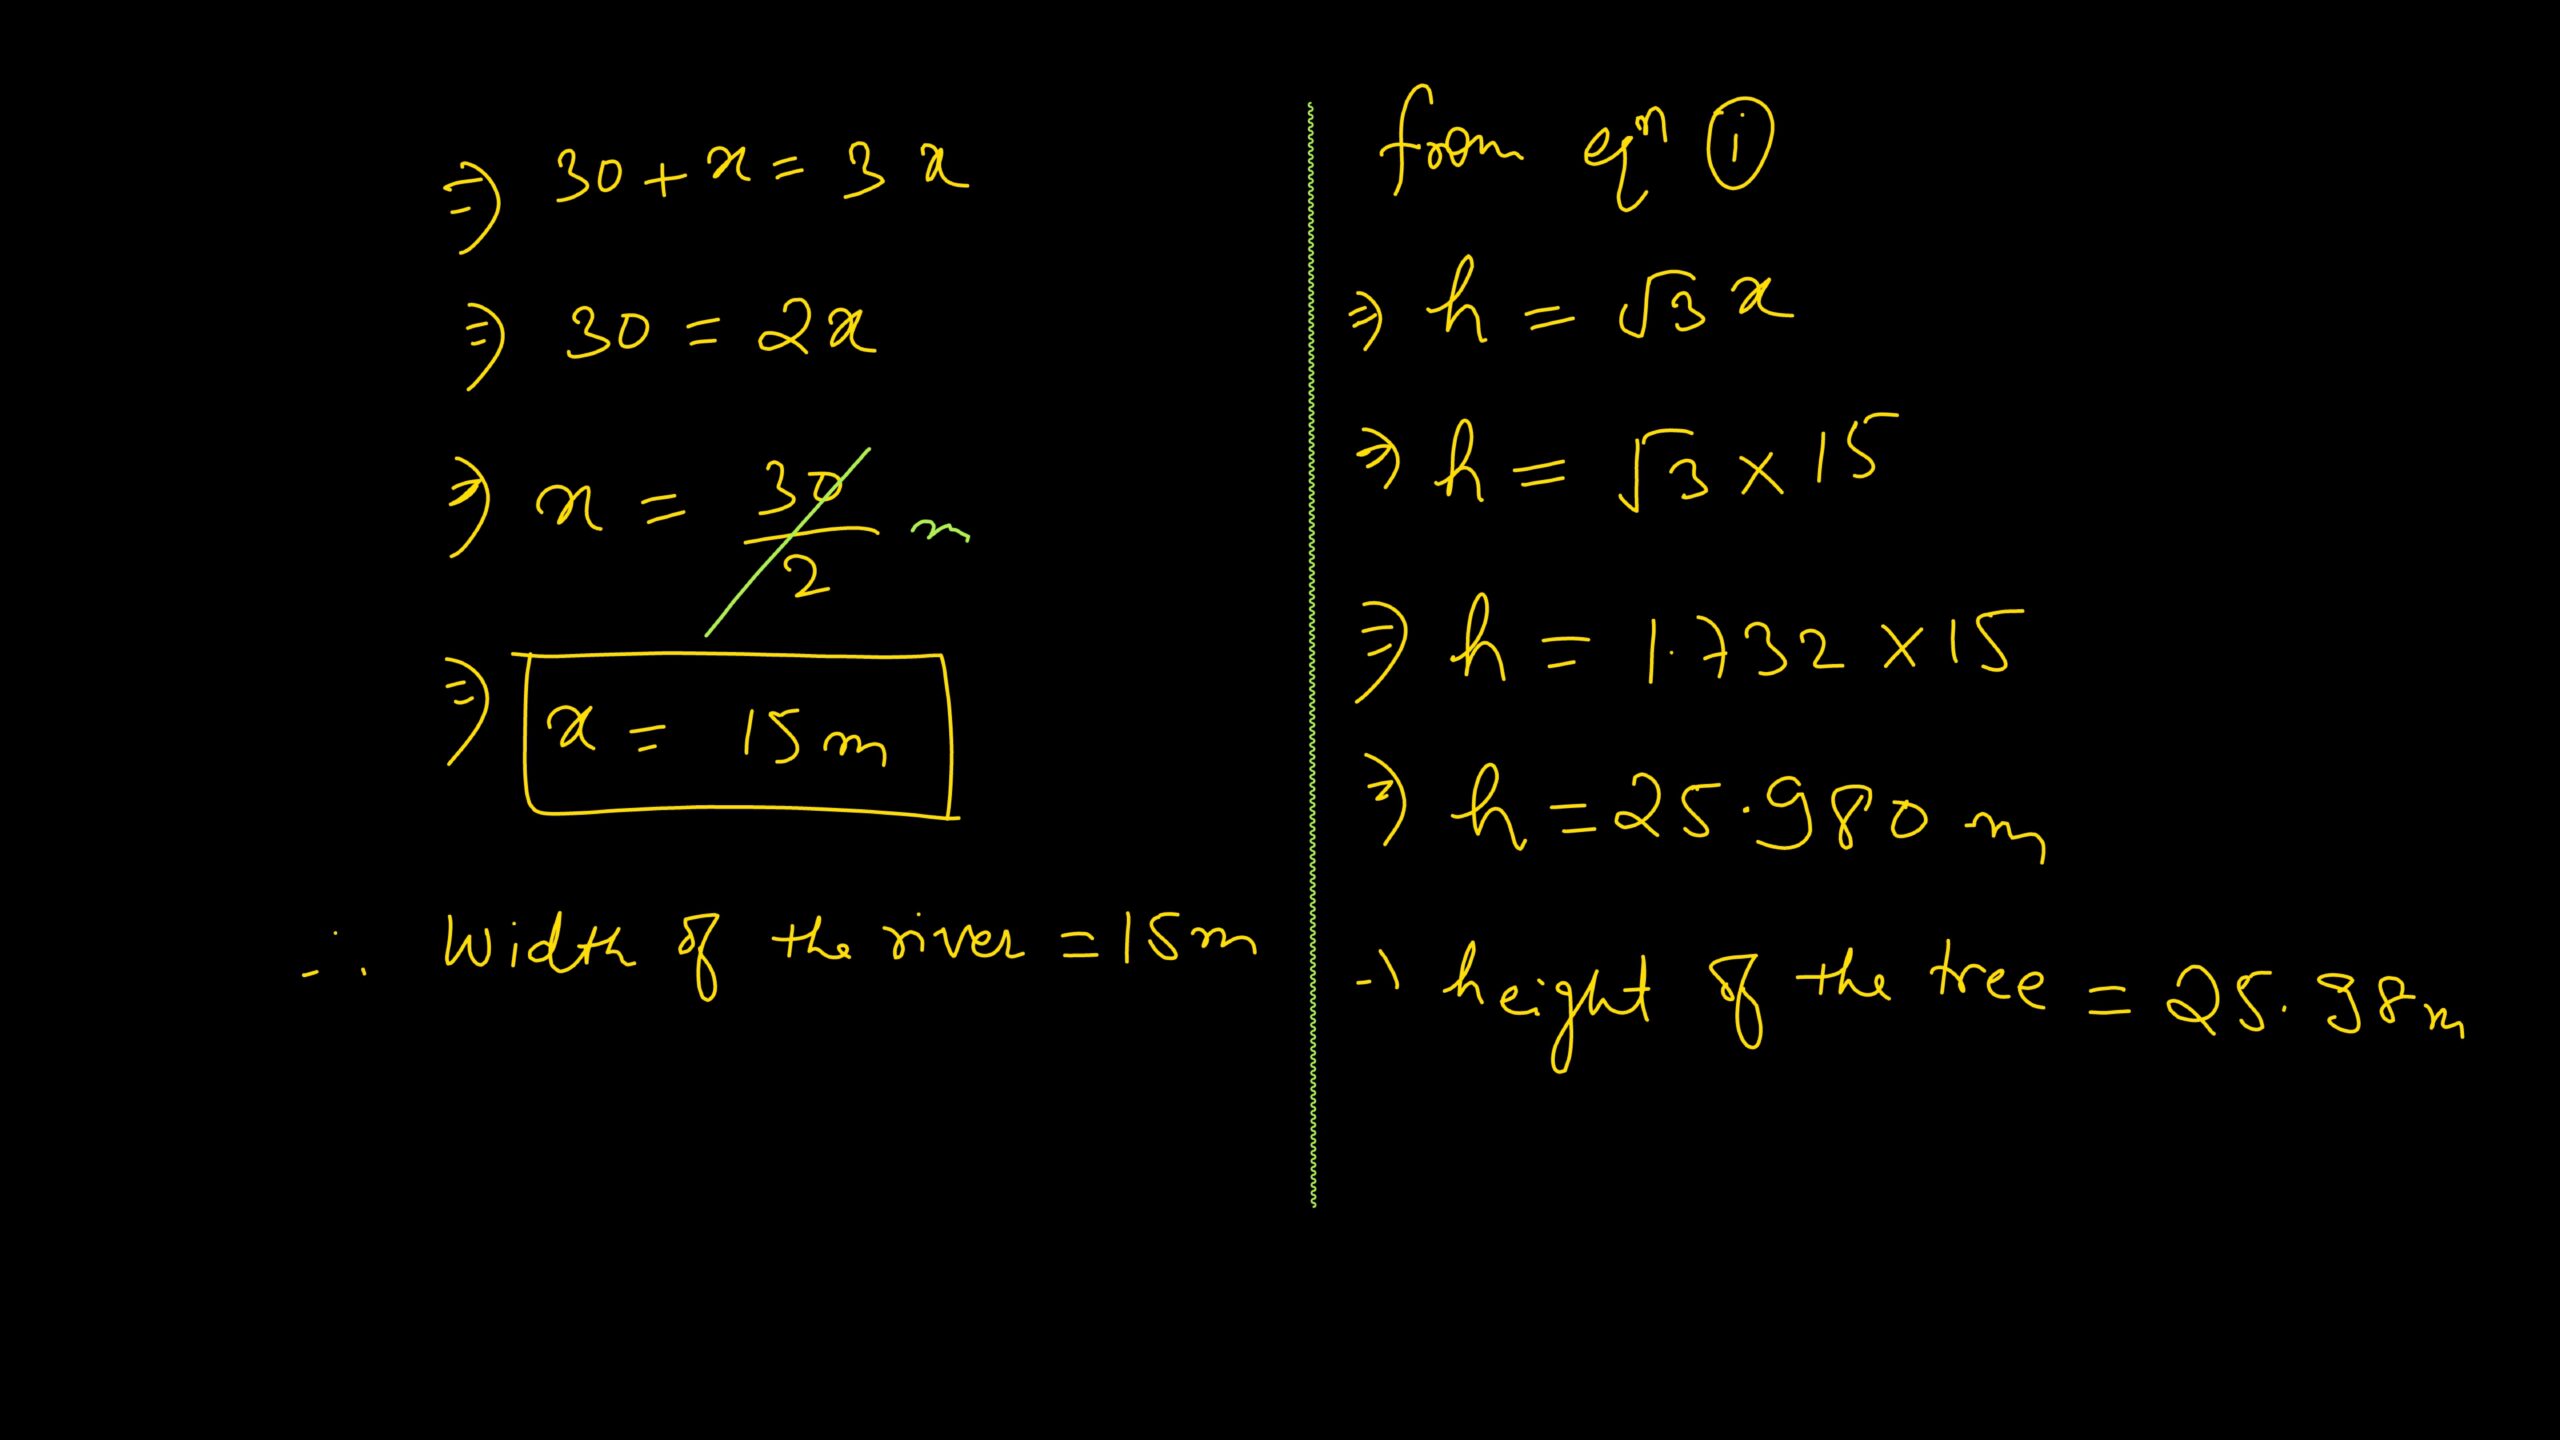 ⇒ 30 + x = 3 x
⇒ 30 = 2x
⇒ x = 30/2 m
⇒ x = 15 m
∴ Width of the river = 15m
from eqⁿ (i)
⇒ h = √3 x
⇒ h = √3 × 15
⇒ h = 1.732 × 15
⇒ h = 25.980 m
→ height of the tree = 25.98m